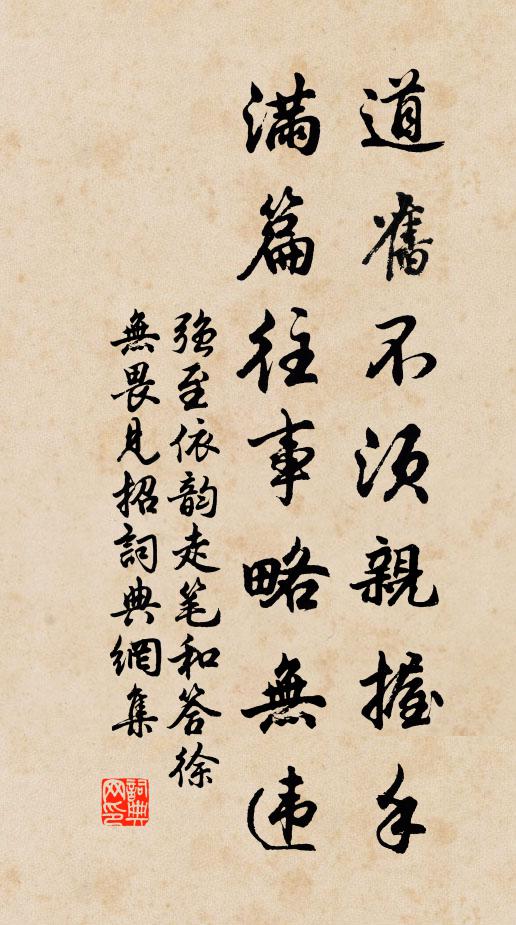 道舊不須親握手
滿篇往事略無违
强至依韵走笔和答徐
無畏見招詞典網集
詞典
网印